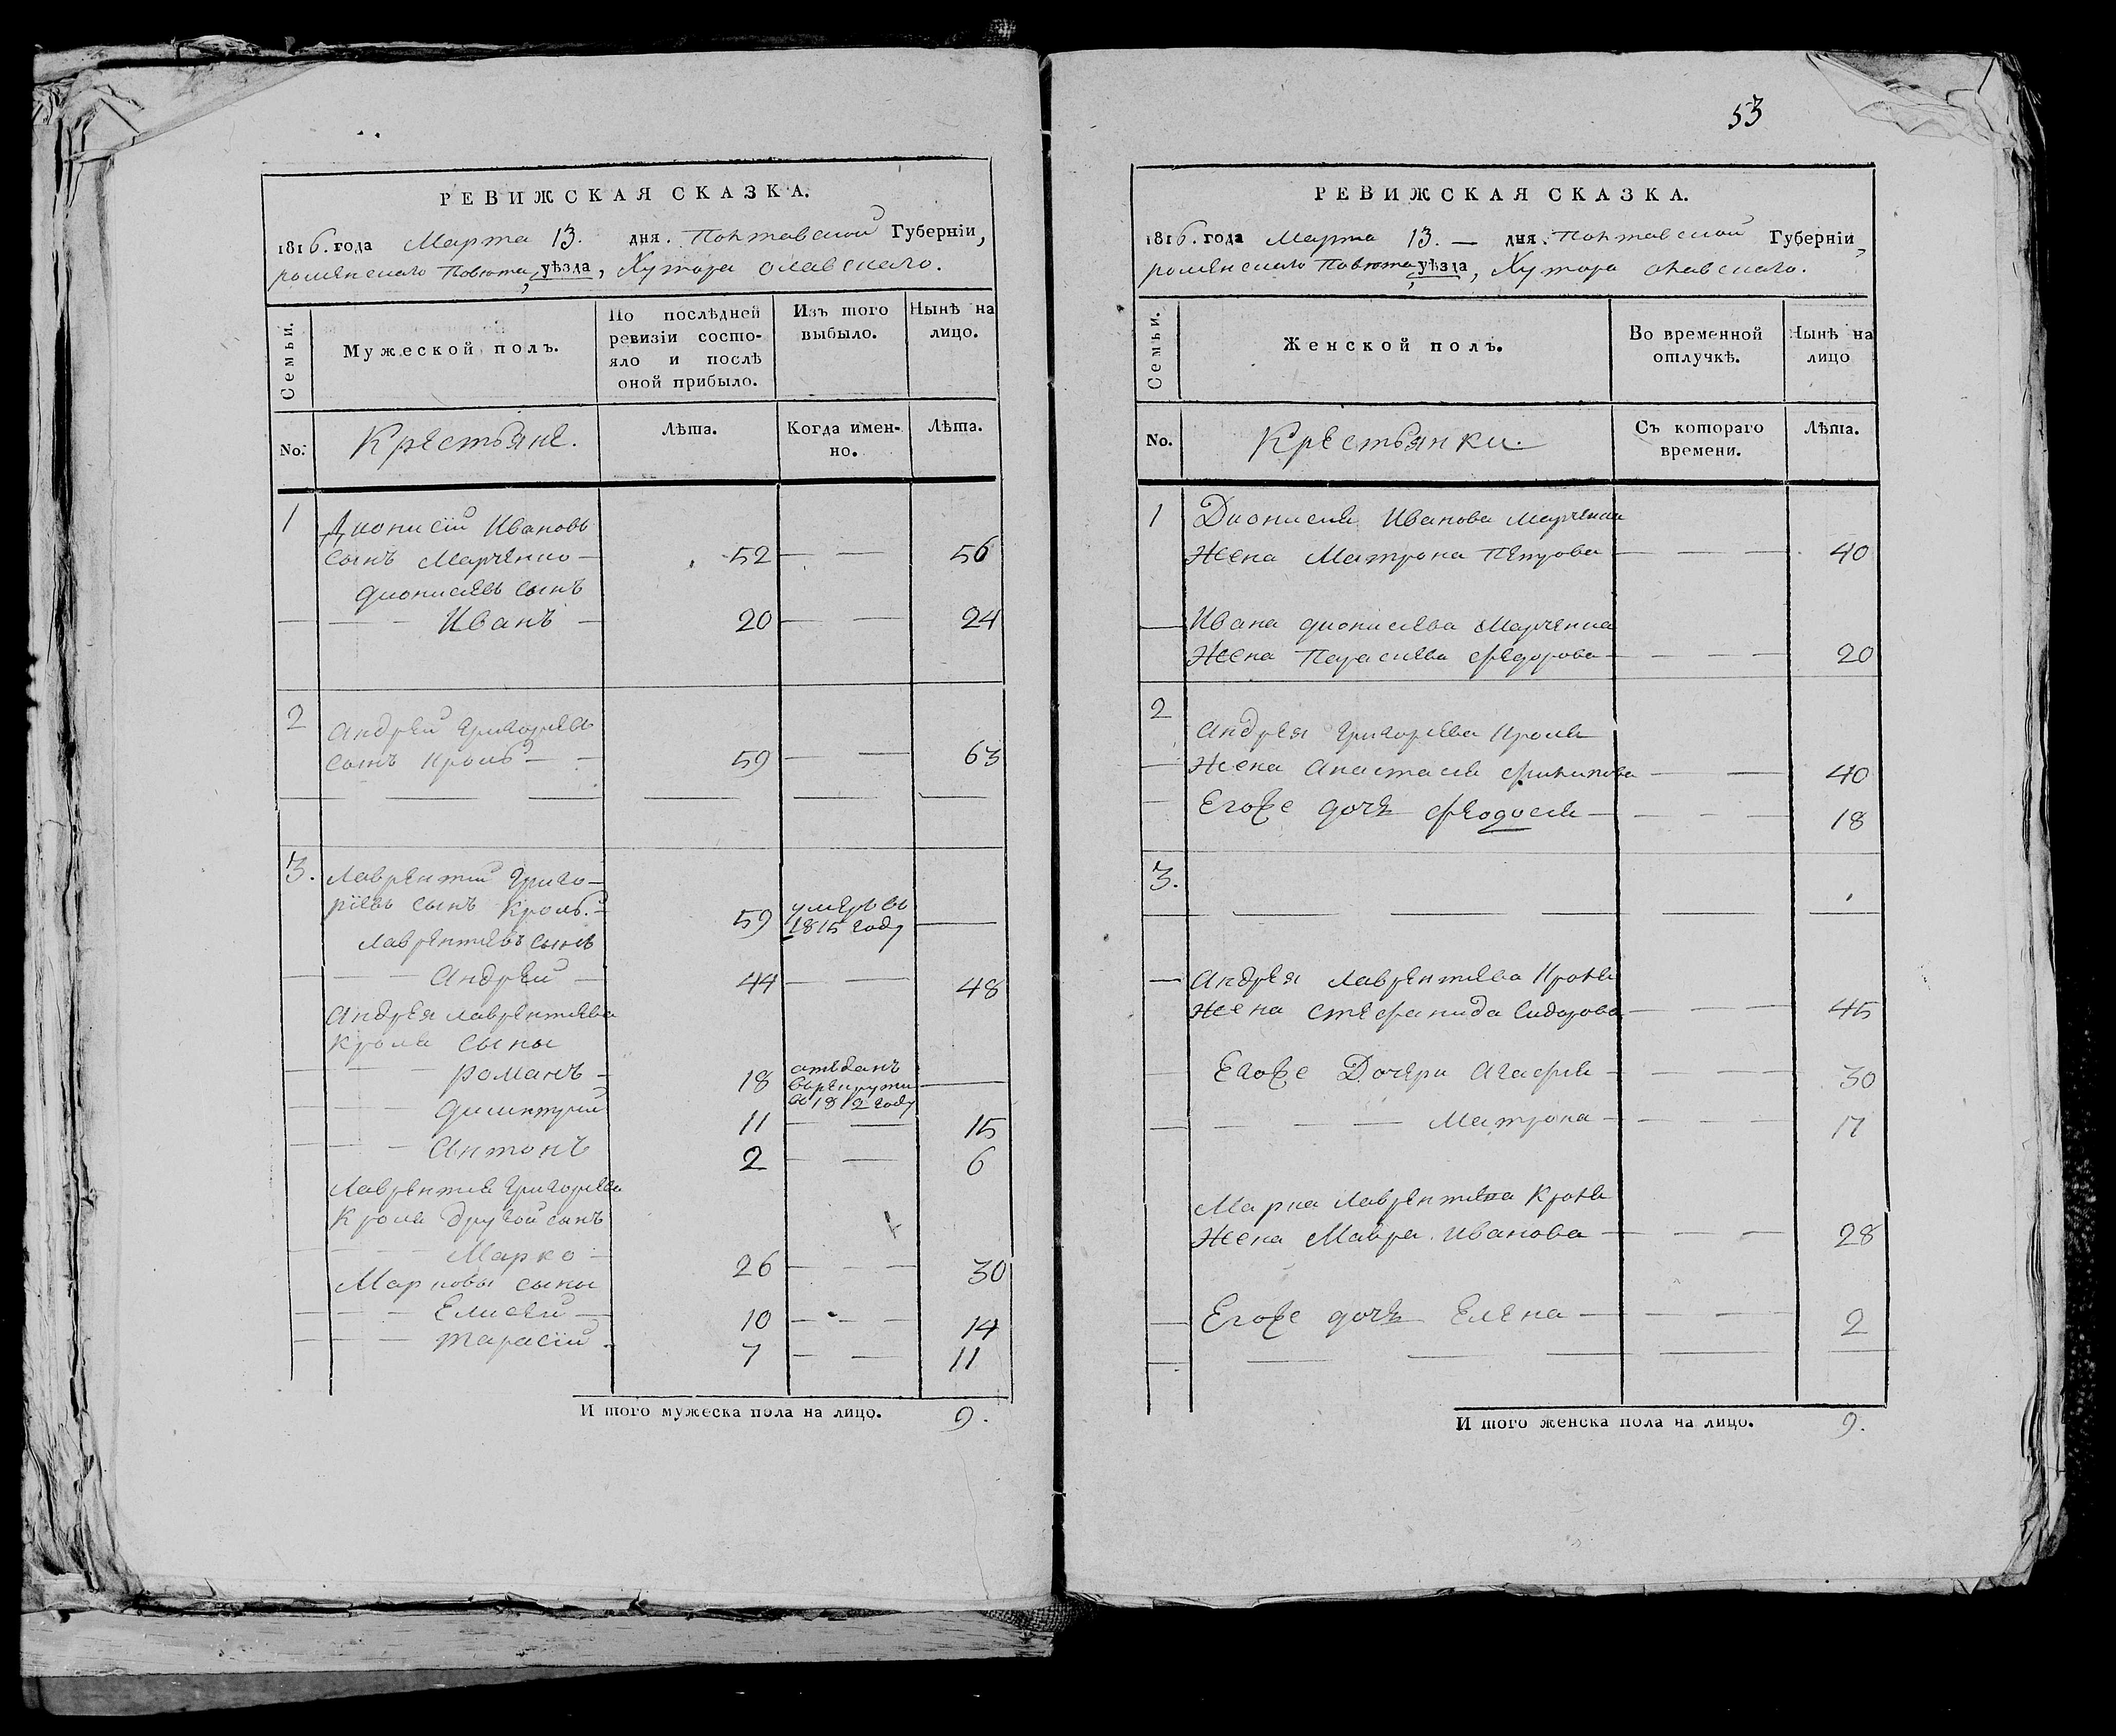 РЕВИЖСКАЯ СКАЗКА.
1816. года Марта 13. дня. Полтавской Губерніи,
роменского Повета, уѣзда, Хутора
Семьи.
Мужеской полъ.
По послѣдней
ревизіи состо-
яло и послѣ
оной прибыло.
Изъ того
выбыло.
Нынѣ на
лицо.
No.
Крестьяне.
Лѣта.
Когда имен-
но.
Лѣта.
1 Дионисій Ивановъ
сынъ Марченко — 52 — — 56
дионисіевъ сынъ
— — — Иванъ — 20 — — 24
2 Андрей Григорьевъ
сынъ Кроль — — 59 — — 63
3. Лаврентий Григо-
ріевъ сынъ Кроль. 59 умеръ въ 1815 году —
Лаврентиевъ сынъ
— — — Андрей — 44 — — 48
Андрея Лаврентиева
Кроля сыны
— — — романъ — 18 отъданъ в рекруты в 1812 году —
— — — димитрий 11 — — 15
— — — Антонъ 2 — — 6
Лаврентия Григориева
Кроля другой сынъ
— — — Марко — 26 — — — 30
Марковы сыны
— — — Елисей — 10 — — — 14
— — — тарасій — 7 — — 11
И того мужеска пола на лицо. 9.
53
РЕВИЖСКАЯ СКАЗКА.
1816. года Марта 13. — дня. Полтавской Губерніи,
роменского Повета, уѣзда, Хутора
Семьи.
Женской полъ.
Во временной
отлучкѣ.
Нынѣ на
лицо
No.
Крестьянки.
Съ котораго
времени.
Лѣта.
1 Дионисия Иванова Марченка
Жена Матрона Петрова — — — 40
— Ивана дионисиева Марченка
Жена Параскева федорова — — — 20
2 Андрея Григориева Кроля
— Жена Анастасия филипова — — 40
— Егоже дочь феодосия — — — — 18
3.
— Андрея Лаврентиева Кроля
Жена Стефанида Сидорова — — — 45
— Егоже Дочери Агафия — — — 30
— — — — Матрона — — — — 17
Марка Лаврентиева Кроля
Жена Мавра Иванова — — — 28
— Егоже дочь Елена — — — — 2
И того женска пола на лицо. 9.